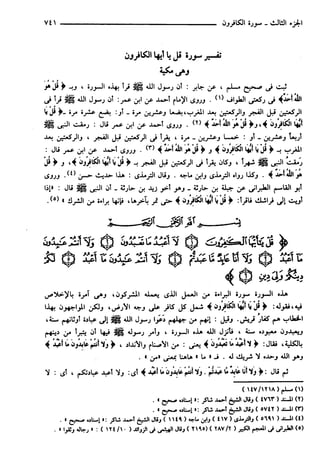 الجزء الثالث - سورة الكافرون ٧٤١
تفسير سورة قل يا أيها الكافرون
وهي مكية
ثبت في صحيح مسلم ، عن جابر : أن رسول الله ﷺ قرأ بهذه السورة ، وبـ ﴿ قُلْ هُوَ
اللَّهُ أَحَدٌ ﴾ في ركعتي الطواف (١) . وروى الإمام أحمد عن ابن عمر: أن رسول الله ﷺ قرأ في
الركعتين قبل الفجر والركعتين بعد المغرب، بضعا وعشرين مرة - أو: بضع عشرة مرة - ﴿ قُلْ يَا
أَيُّهَا الْكَافِرُونَ ﴾ و﴿ قُلْ هُوَ اللَّهُ أَحَدٌ ﴾ (٢) . وروى أحمد عن ابن عمر قال : رمقت النبي ﷺ
أربعاً وعشرين - أو : خمسا وعشرين - مرة ، يقرأ في الركعتين قبل الفجر ، والركعتين بعد
المغرب بـ ﴿ قُلْ يَا أَيُّهَا الْكَافِرُونَ ﴾ و ﴿ قُلْ هُوَ اللَّهُ أَحَدٌ ﴾ (٣) . وروى أحمد عن ابن عمر قال :
رمقت النبي ﷺ شهراً ، وكان يقرأ في الركعتين قبل الفجر بـ ﴿ قُلْ يَا أَيُّهَا الْكَافِرُونَ ﴾ ، و ﴿ قُلْ
هُوَ اللَّهُ أَحَدٌ ﴾ . وكذا رواه الترمذي وابن ماجه . وقال الترمذي : هذا حديث حسن (٤) . وروى
أبو القاسم الطبراني عن جبلة بن حارثة - وهو أخو زيد بن حارثة - أن النبي ﷺ قال : «إذا
أويت إلى فراشك فاقرأ: ﴿ قُلْ يَا أَيُّهَا الْكَافِرُونَ ﴾ حتى تمر بآخرها، فإنها براءة من الشرك » (٥) .
بسم الله الرحمن الرحيم
﴿ قُلْ يَا أَيُّهَا الْكَافِرُونَ ۝ لَا أَعْبُدُ مَا تَعْبُدُونَ ۝ وَلَا أَنْتُمْ عَابِدُونَ
مَا أَعْبُدُ ۝ وَلَا أَنَا عَابِدٌ مَا عَبَدْتُمْ ۝ وَلَا أَنْتُمْ عَابِدُونَ مَا أَعْبُدُ ۝ لَكُمْ
دِينُكُمْ وَلِيَ دِينِ ۝ ﴾
هذه السورة سورة البراءة من العمل الذي يعمله المشركون، وهي آمرة بالإخلاص
فيه، فقوله: ﴿ قُلْ يَا أَيُّهَا الْكَافِرُونَ ﴾ شمل كل كافر على وجه الأرض، ولكن المواجهون بهذا
الخطاب هم كفارُ قريش. وقيل : إنهم من جهلهم دَعَوا رسول الله ﷺ إلى عبادة أوثانهم سنة،
ويعبدون معبوده سنة ، فأنزل الله هذه السورة ، وأمر رسوله ﷺ فيها أن يتبرأ من دينهم
بالكلية، فقال: ﴿ لَا أَعْبُدُ مَا تَعْبُدُونَ ﴾ يعني : من الأصنام والأنداد ، ﴿ وَلَا أَنْتُمْ عَابِدُونَ مَا أَعْبُدُ ﴾
وهو الله وحده لا شريك له . فـ « ما » هاهنا بمعنى «من » .
ثم قال : ﴿ وَلَا أَنَا عَابِدٌ مَا عَبَدْتُمْ . وَلَا أَنْتُمْ عَابِدُونَ مَا أَعْبُدُ ﴾ أي: ولا أعبد عبادتكم ، أي : لا
(١) مسلم (١٢١٨/١٤٧)
(٢) المسند (٤٧٦٣) وقال الشيخ أحمد شاكر : « إسناده صحيح » .
(٣) المسند (٥٧٤٢) وقال الشيخ أحمد شاكر : « إسناده صحيح » .
(٤) المسند (٥٦٩١) والترمذي (٤١٧) وابن ماجه (١١٤٩) وقال الشيخ أحمد شاكر : « إسناده صحيح » .
(٥) الطبراني في المعجم الكبير (٢/ ٢٨٧) (٢١٩٥) وقال الهيثمي في الزوائد (١٠/ ١٢٤) : « رجاله وثقوا » .